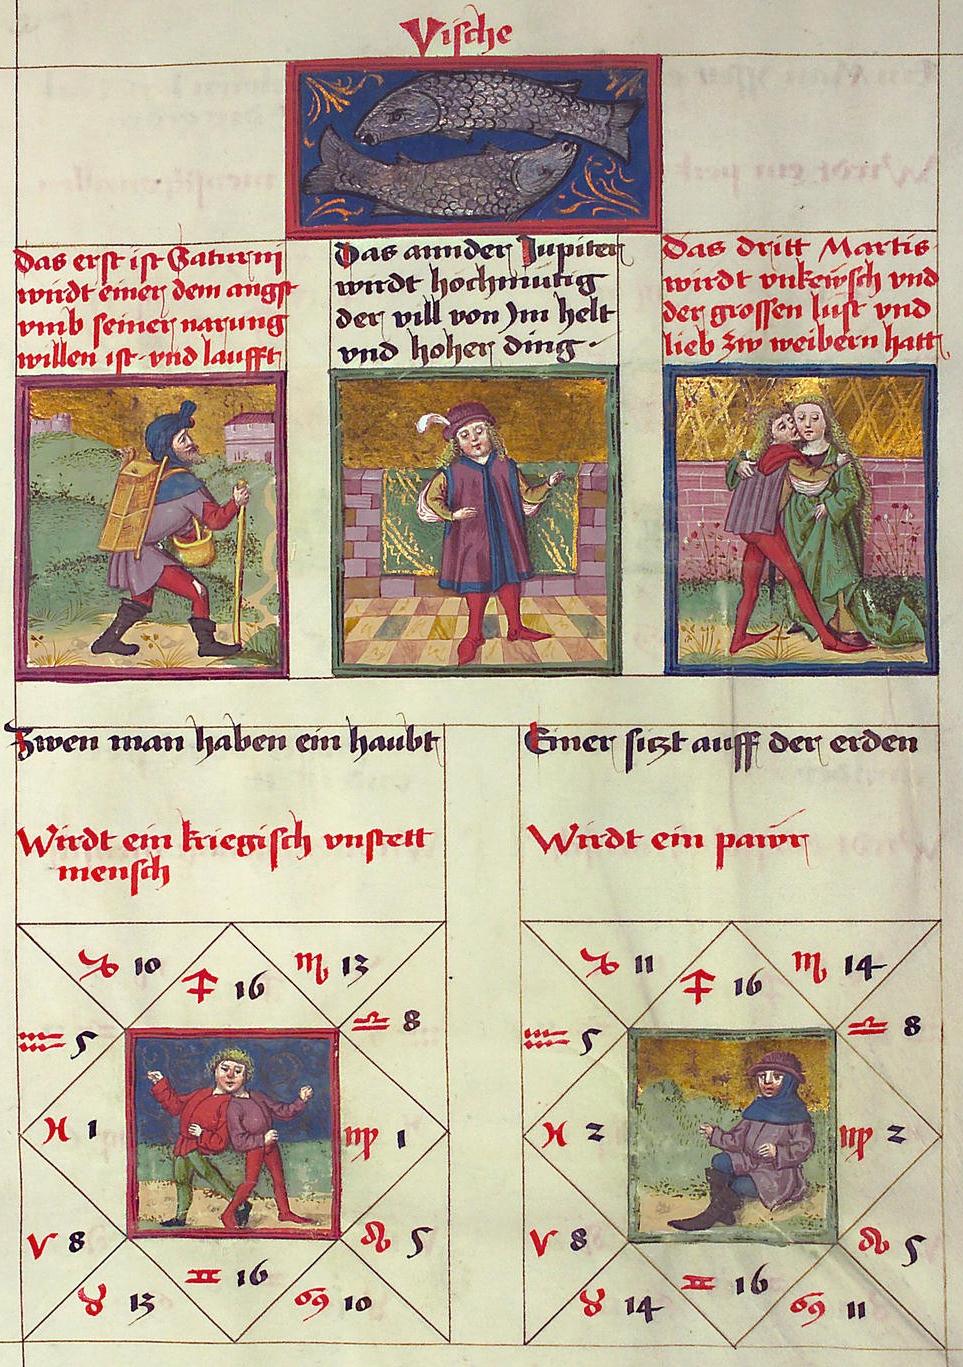 Vische
das erst ist Saturnj
wirdt einer dem angst
vmb seiner narung
willen ist vnd laufft
Das annder Jupiter
wirdt hochmutig
der vill von Jm helt
vnd hoher ding .
Das dritt Martis
wirdt vnkewsch vnd
der grossen lust vnd
lieb zw weibern hatt
Zwen man haben ein haubt
Wirdt ein kriegisch vnstett
mensch
♑ 10
♐ 16
♏ 13
♒ 5
♎ 8
♓ 1
♍ 1
♈ 8
♌ 5
♉ 13
♊ 16
♋ 10
Einer sitzt auff der erden
Wirdt ein pawr
♑ 11
♐ 16
♏ 14
♒ 5
♎ 8
♓ 2
♍ 2
♈ 8
♌ 5
♉ 14
♊ 16
♋ 11